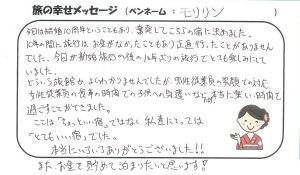 旅の幸せメッセージ (ペンネーム: モリリン )
今回は結婚10周年ということもあり、奮発してこちらの宿に決めました。
10年の間に旅行は、お金がなかったこともあり正直行ったことがありません
でした。今回が新婚旅行の後の10年ぶりの旅行でとても楽しみにして
いました。
どういう旅館か、よくわかりませんでしたが、男性従業員の笑顔での対応
女性従業員の食事の時間での子供への気遣いなど、本当に楽しい時間で
過ごすことができました。
ここは、"ちょっといい宿"ではなく、私達にとっては
"とてもいい宿"でした。
本当にいろいろありがとうございました!!
また、お金を貯めて泊まりたいと思います!